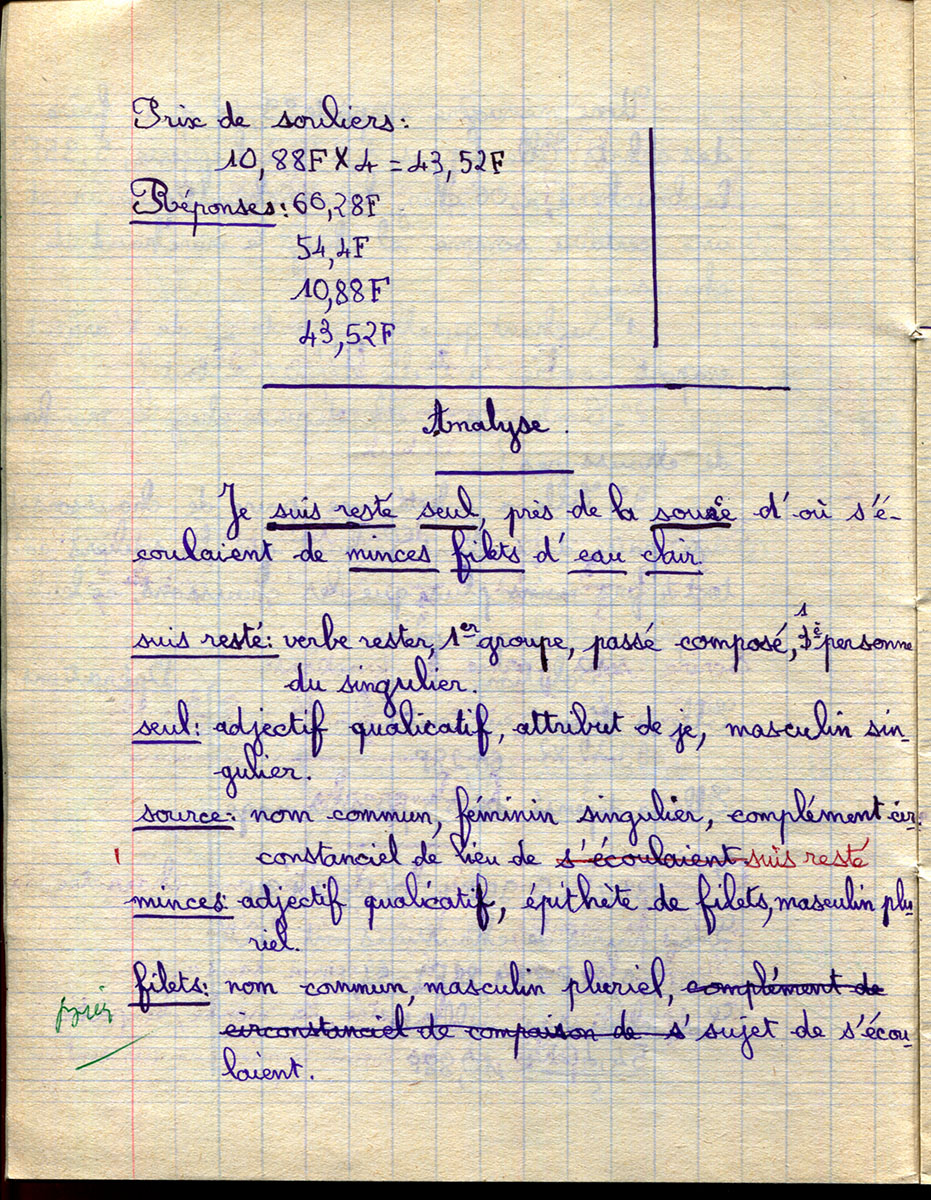 Prix de souliers:
10,88F X 4 = 43,52F
Réponses: 66,28F
54,4F
10,88F
43,52F
Analyse.
Je suis resté seul, près de la source d'où s'é-
coulaient de minces filets d'eau clair.
suis resté: verbe rester, 1er groupe, passé composé, 1è personne
du singulier.
seul: adjectif qualicatif, attribut de je, masculin sin-
gulier.
source: nom commun, féminin singulier, complément cir-
constanciel de lieu de s'écoulaient suis resté
minces: adjectif qualicatif, épithète de filets, masculin plu-
riel.
filets: nom commun, masculin pluriel, complément de
circonstanciel de compaison de s' sujet de s'écou-
laient.